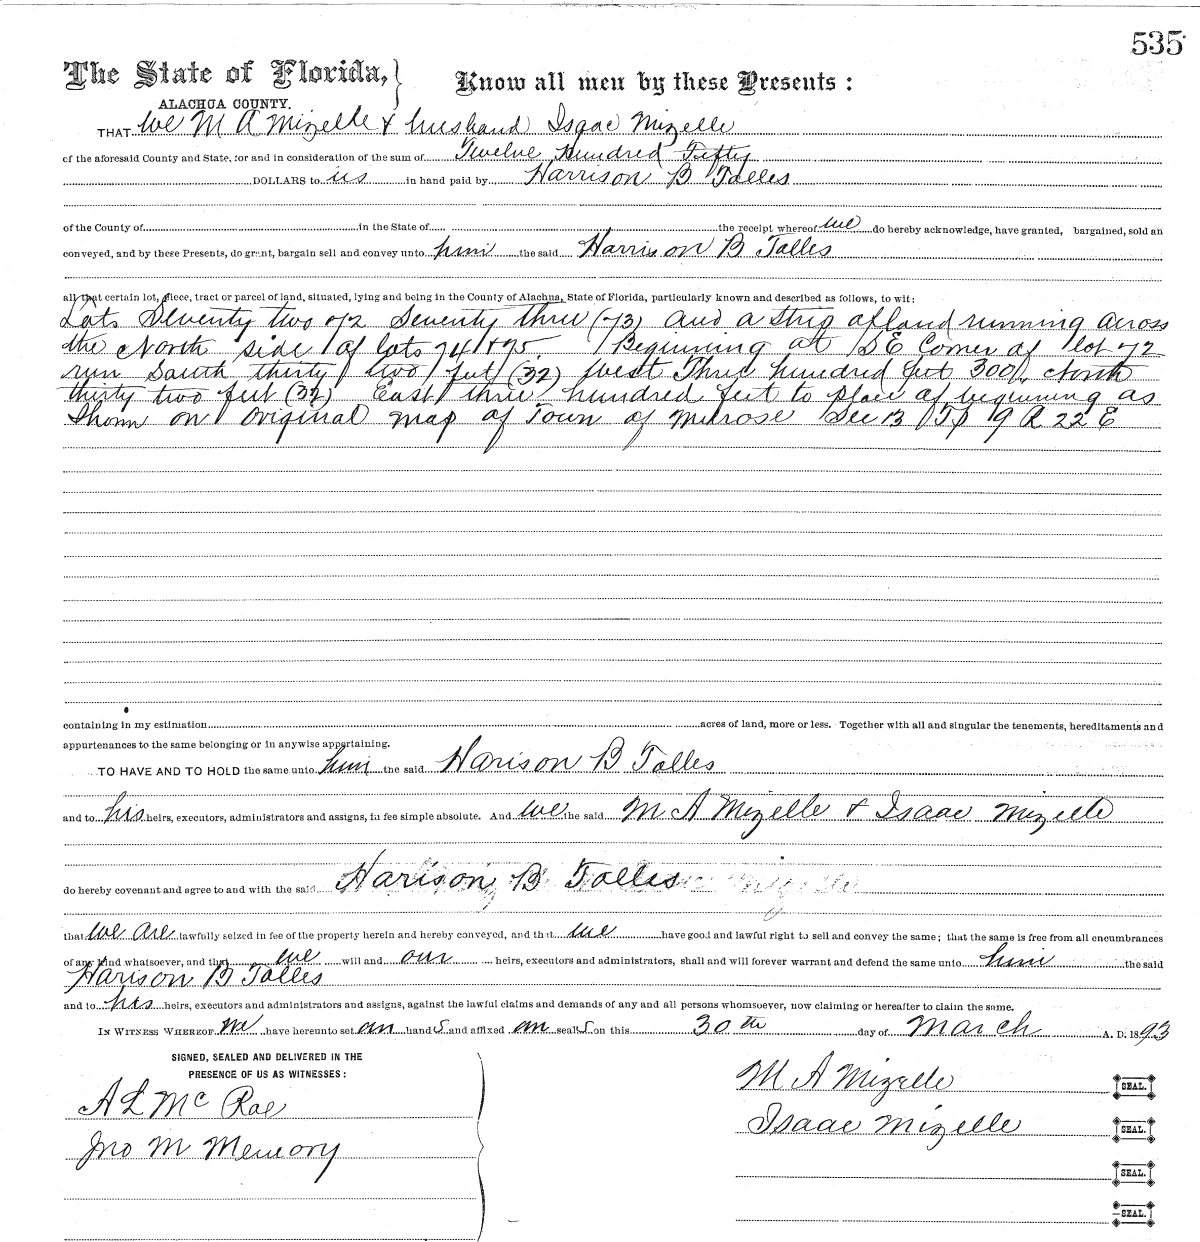 535
The State of Florida,
ALACHUA COUNTY.
Know all men by these Presents:
THAT We M A Mizelle & husband Isaac Mizelle
of the aforesaid County and State, for and in consideration of the sum of Twelve Hundred Fifty
DOLLARS to us in hand paid by Harrison B Talles
of the County of in the State of the receipt whereof we do hereby acknowledge, have granted, bargained, sold an
conveyed, and by these Presents, do grant, bargain sell and convey unto him the said Harrison B Talles
all that certain lot, piece, tract or parcel of land, situated, lying and being in the County of Alachua, State of Florida, particularly known and described as follows, to wit:
Lots Seventy two 72 Seventy three (73) and a strip of land running across
the North side of lots 74 & 75. Beginning at SE Corner of lot 72
run South thirty two feet (32) West Three hundred feet 300, North
thirty two feet (32) East three hundred feet to place of beginning as
Shown on Original map of Town of Melrose Sec 13 Tp 9 R 22 E
containing in my estimation acres of land, more or less. Together with all and singular the tenements, hereditaments and
appurtenances to the same belonging or in anywise appertaining.
TO HAVE AND TO HOLD the same unto him the said Harison B Talles
and to his heirs, executors, administrators and assigns, in fee simple absolute. And we the said M A Mizelle & Isaac Mizelle
do hereby covenant and agree to and with the said Harison B Talles
that we are lawfully seized in fee of the property herein and hereby conveyed, and that we have good and lawful right to sell and convey the same; that the same is free from all encumbrances
of any kind whatsoever, and that we will and our heirs, executors and administrators, shall and will forever warrant and defend the same unto him the said
Harison B Talles
and to his heirs, executors and administrators and assigns, against the lawful claims and demands of any and all persons whomsoever, now claiming or hereafter to claim the same.
IN WITNESS WHEREOF we have hereunto set our hands and affixed our seals on this 30th day of March A. D. 1893
SIGNED, SEALED AND DELIVERED IN THE
PRESENCE OF US AS WITNESSES:
A L McRae
Jno M Memory
M A Mizelle SEAL.
Isaac Mizelle SEAL.
SEAL.
SEAL.